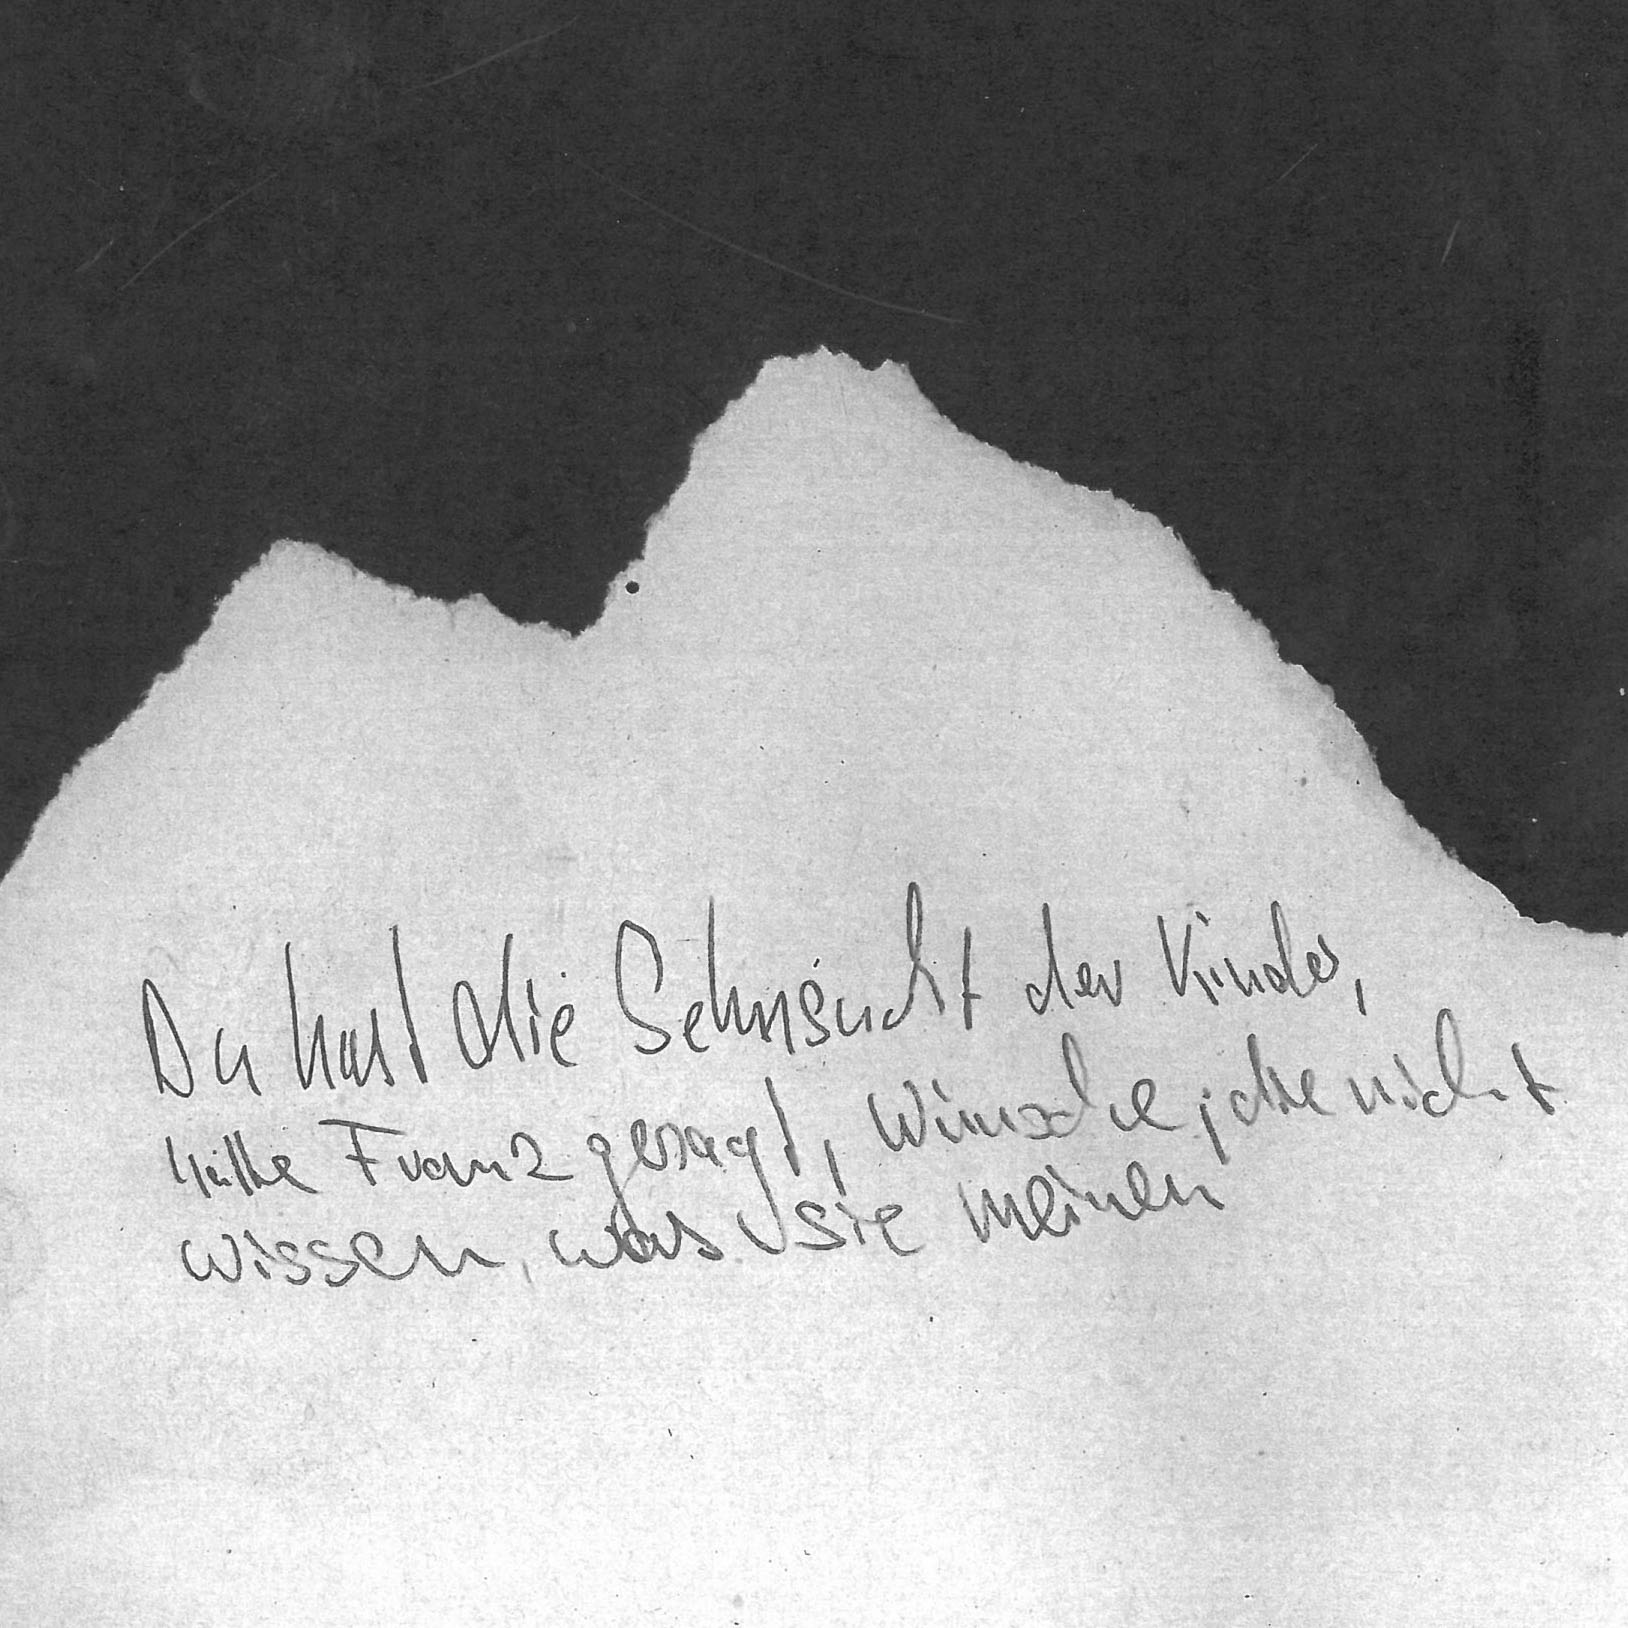 Du hast die Sehnsucht der Kinder,
hatte Franz gesagt, Wünsche, die nicht
wissen, was sie meinen